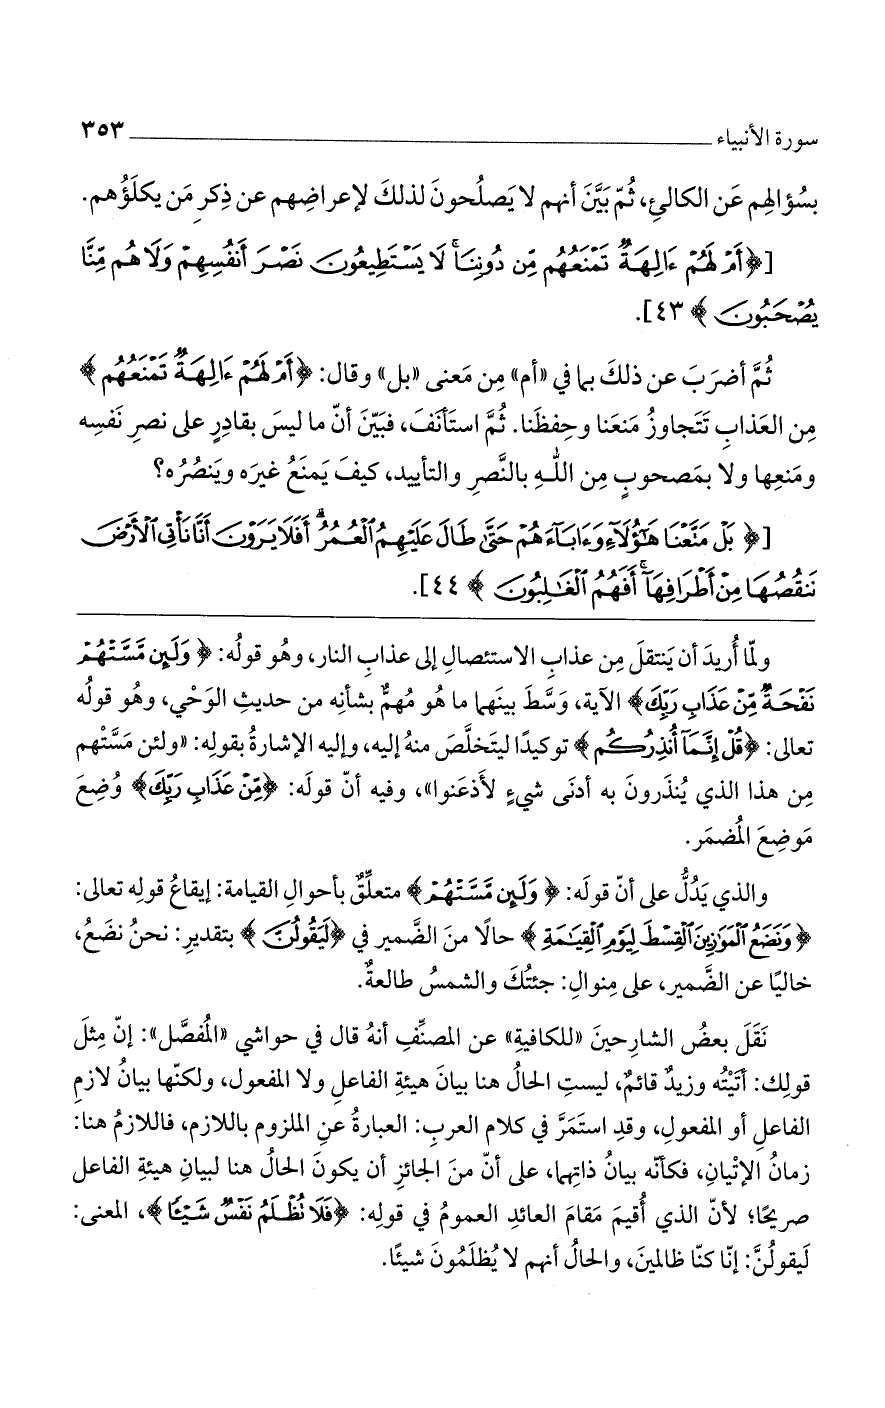 سورة الأنبياء ٣٥٣
بسُؤالهِم عَن الكالئِ، ثُمّ بَيَّنَ أنهم لا يَصلُحونَ لذلكَ لإعراضِهم عن ذِكرِ مَن يكلَؤُهم.
[﴿أَمْ لَهُمْ ءَالِهَةٌ تَمْنَعُهُم مِّن دُونِنَا ۚ لَا يَسْتَطِيعُونَ نَصْرَ أَنفُسِهِمْ وَلَا هُم مِّنَّا
يُصْحَبُونَ ﴾ ٤٣].
ثُمَّ أضرَبَ عن ذلكَ بما في «أم» مِن مَعنى «بل» وقال: ﴿أَمْ لَهُمْ ءَالِهَةٌ تَمْنَعُهُم ﴾
مِن العَذابِ تَتَجاوزُ مَنعَنا وحِفظَنا. ثُمَّ استَأنَفَ، فبَيّنَ أنّ ما ليسَ بقادِرٍ على نصرِ نَفسِه
ومَنعِها ولا بمَصحوبٍ مِن اللهِ بالنَّصرِ والتأييد، كيفَ يَمنَعُ غيرَه ويَنصُرُه؟
[﴿ بَلْ مَتَّعْنَا هَٰٓؤُلَآءِ وَءَابَآءَهُمْ حَتَّىٰ طَالَ عَلَيْهِمُ ٱلْعُمُرُ ۗ أَفَلَا يَرَوْنَ أَنَّا نَأْتِى ٱلْأَرْضَ
نَنقُصُهَا مِنْ أَطْرَافِهَآ ۚ أَفَهُمُ ٱلْغَٰلِبُونَ ﴾ ٤٤].
ولمّا أُريدَ أن يَنتقلَ مِن عذابِ الاستئصالِ إلى عذابِ النار، وهُو قولُه: ﴿ وَلَئِن مَّسَّتْهُمْ
نَفْحَةٌ مِّنْ عَذَابِ رَبِّكَ﴾ الآية، وَسَّطَ بينَهما ما هُو مُهمٌّ بشأنِه من حديثِ الوَحْي، وهُو قولُه
تعالى: ﴿قُلْ إِنَّمَآ أُنذِرُكُم ﴾ توكيدًا ليَتخلَّصَ منهُ إليه، وإليه الإشارةُ بقولِه: «ولئن مَسَّتْهم
مِن هذا الذي يُنذَرونَ به أدنَى شيءٍ لأَذعَنوا»، وفيه أنّ قولَه: ﴿مِّنْ عَذَابِ رَبِّكَ﴾ وُضِعَ
مَوضِعَ المُضمَر.
والذي يَدُلُّ على أنّ قولَه: ﴿ وَلَئِن مَّسَّتْهُمْ﴾ متعلِّقٌ بأحوالِ القيامة: إيقاعُ قولِه تعالى:
﴿ وَنَضَعُ ٱلْمَوَٰزِينَ ٱلْقِسْطَ لِيَوْمِ ٱلْقِيَٰمَةِ ﴾ حالًا منَ الضَّمير في ﴿لَيَقُولُنَّ ﴾ بتقديرِ: نحنُ نضَعُ،
خاليًا عن الضَّمير، على مِنوالِ: جئتُكَ والشمسُ طالعةٌ.
نَقَلَ بعضُ الشارِحينَ «للكافيةِ» عن المصنِّفِ أنهُ قال في حواشي «المُفصَّل»: إنّ مِثلَ
قولِك: أتَيْتُه وزيدٌ قائمٌ، ليستِ الحالُ هنا بيانَ هيئةِ الفاعلِ ولا المفعول، ولكنّها بيانُ لازمِ
الفاعلِ أو المفعولِ، وقدِ استَمَرَّ في كلام العربِ: العبارةُ عنِ الملزوم باللازم، فاللازمُ هنا:
زمانُ الإتْيانِ، فكأنّه بيانُ ذاتِهما، على أنّ منَ الجائزِ أن يكونَ الحالُ هنا لبيانِ هيئةِ الفاعل
صريحًا؛ لأنّ الذي أُقيمَ مَقامَ العائدِ العمومُ في قولِه: ﴿فَلَا تُظْلَمُ نَفْسٌ شَيْـًٔا﴾، المعنى:
لَيقولُنَّ: إنّا كنّا ظالمينَ، والحالُ أنهم لا يُظلَمُونَ شيئًا.